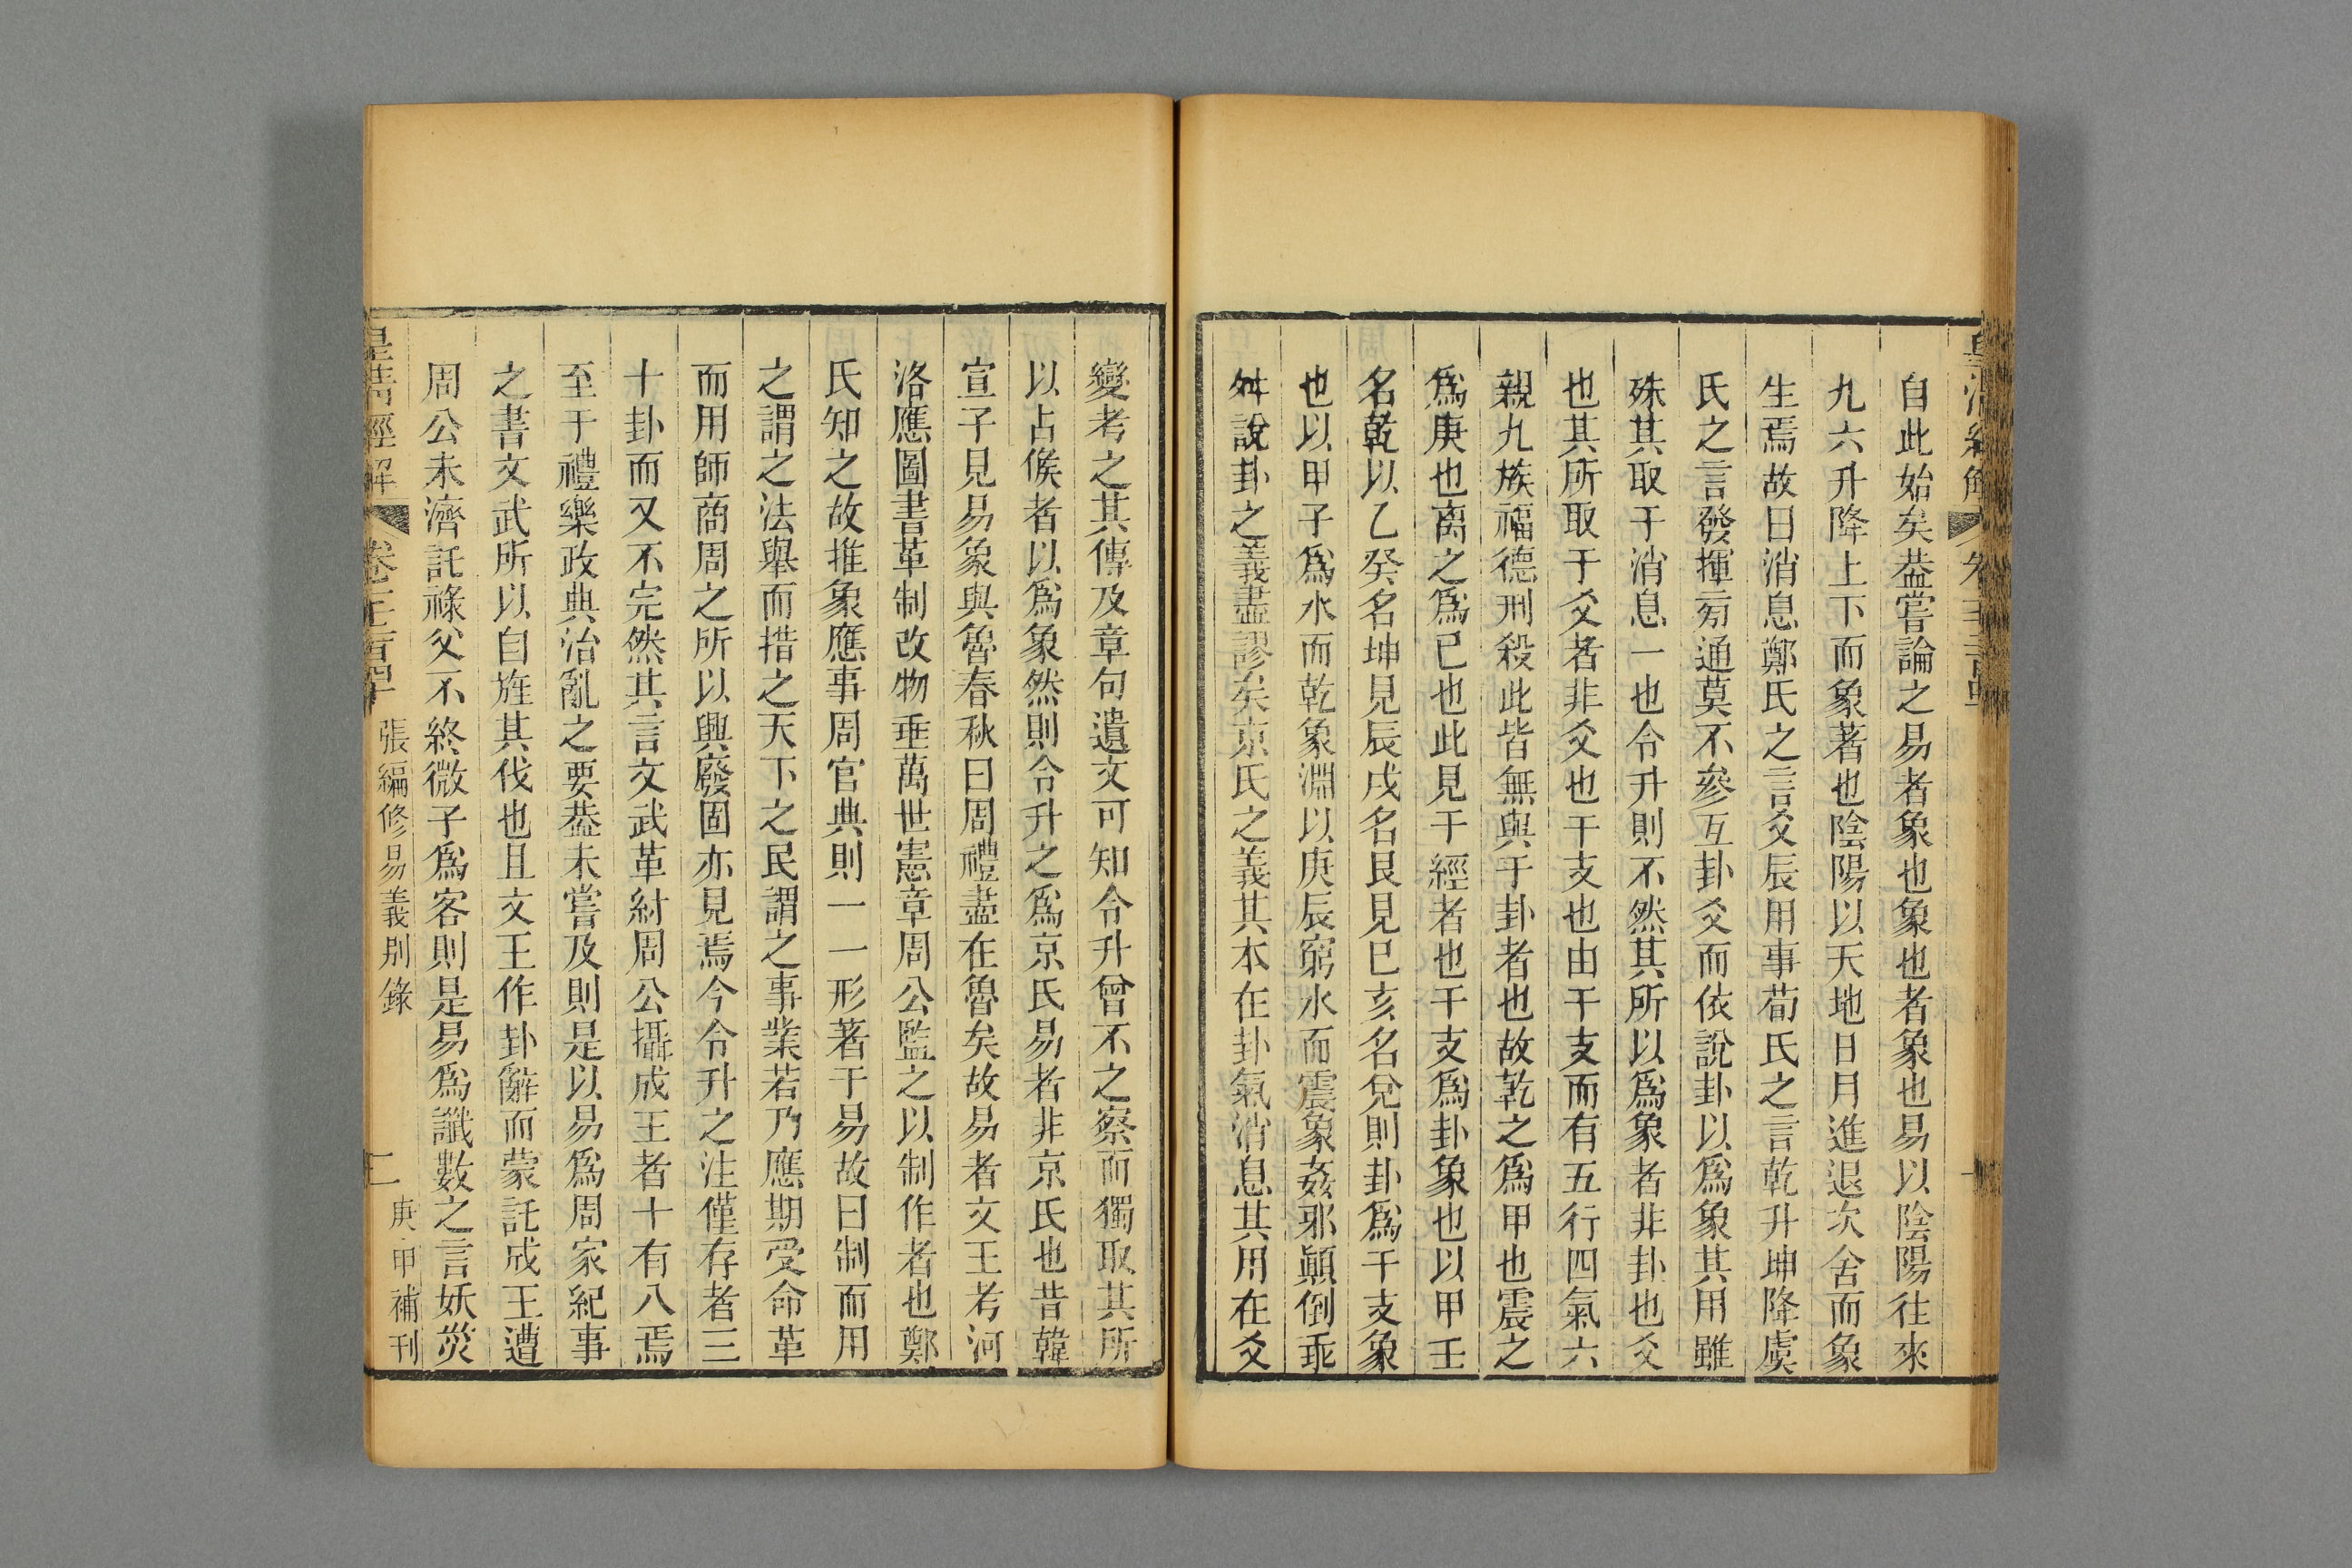 自此始矣葢嘗論之易者象也象也者象也易以陰陽往來
九六升降上下而象著也陰陽以天地日月進退次舍而象
生焉故曰消息鄭氏之言爻辰用事荀氏之言乾升坤降虞
氏之言發揮㫄通莫不參互卦爻而依說卦以爲象其用雖
殊其取于消息一也令升則不然其所以爲象者非卦也爻
也其所取于爻者非爻也干支也由干支而有五行四氣六
親九族福德刑殺此皆無與于卦者也故乾之爲甲也震之
爲庚也离之爲巳也此見于經者也干支爲卦象也以甲壬
名乾以乙癸名坤見辰戌名艮見巳亥名兌則卦爲干支象
也以甲子爲水而乾象淵以庚辰窮水而震象姦邪顚倒乖
舛說卦之義盡謬矣京氏之義其本在卦氣消息其用在爻
變考之其傳及章句遺文可知令升曾不之察而獨取其所
以占候者以爲象然則令升之爲京氏易者非京氏也昔韓
宣子見易象與魯春秋曰周禮盡在魯矣故易者文王考河
洛應圖書革制改物垂萬世憲章周公監之以制作者也鄭
氏知之故推象應事周官典則一一形著于易故曰制而用
之謂之法舉而措之天下之民謂之事業若乃應期受命革
而用師商周之所以興廢固亦見焉今令升之注僅存者三
十卦而又不完然其言文武革紂周公攝成王者十有八焉
至于禮樂政典治亂之要葢未嘗及則是以易爲周家紀事
之書文武所以自旌其伐也且文王作卦辭而蒙託成王遭
周公未濟託祿父不終微子爲客則是易爲讖數之言妖災
皇清經解 卷三百四十 張編修易義別錄 二 庚申補刊